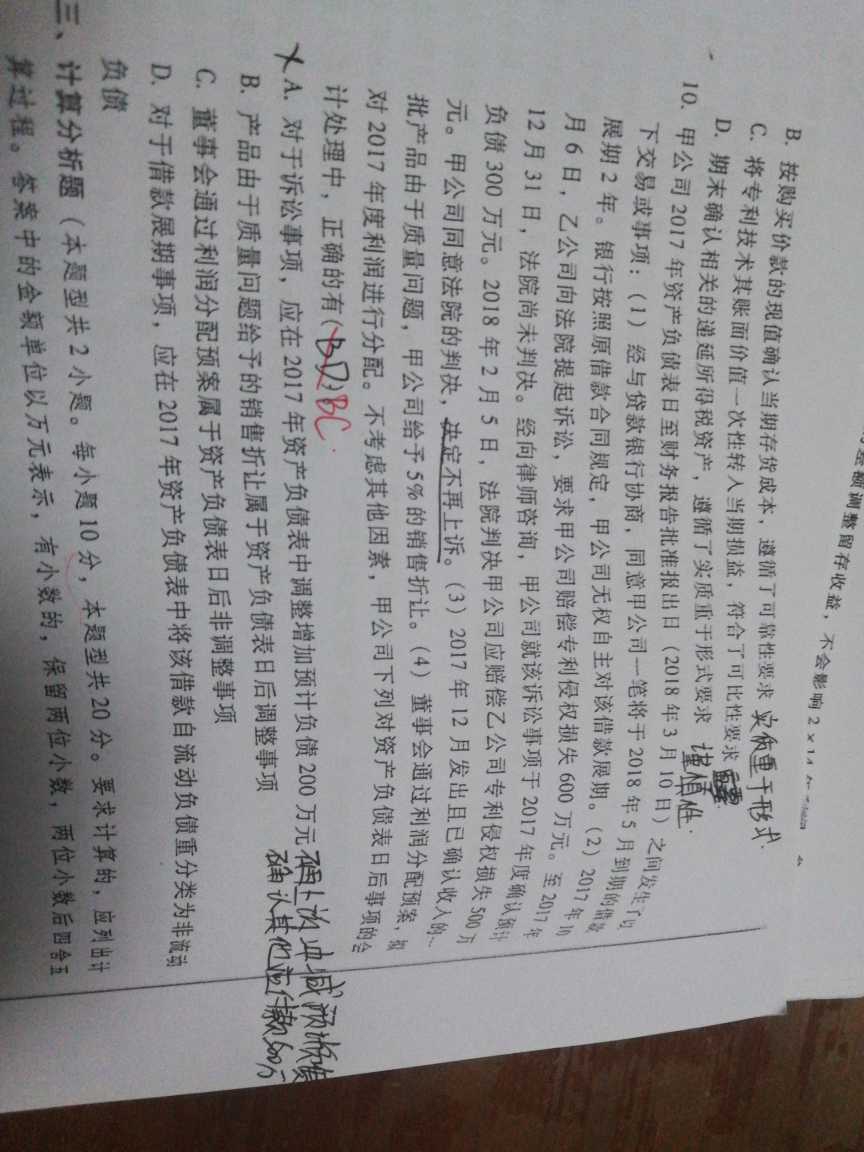 的金额调整留存收益，不会影响2×14年
B. 按购买价款的现值确认当期存货成本，遵循了可靠性要求 实质重于形式.
C. 将专利技术其账面价值一次性转入当期损益，符合了可比性要求
D. 期末确认相关的递延所得税资产，遵循了实质重于形式要求 谨慎性.
10. 甲公司2017年资产负债表日至财务报告批准报出日（2018年3月10日）之间发生了以
下交易或事项：（1）经与贷款银行协商，同意甲公司一笔将于2018年5月到期的借款
展期2年。银行按照原借款合同规定，甲公司无权自主对该借款展期。（2）2017年10
月6日，乙公司向法院提起诉讼，要求甲公司赔偿专利侵权损失600万元。至2017年
12月31日，法院尚未判决。经向律师咨询，甲公司就该诉讼事项于2017年度确认预计
负债300万元。2018年2月5日，法院判决甲公司应赔偿乙公司专利侵权损失500万
元。甲公司同意法院的判决，决定不再上诉。（3）2017年12月发出且已确认收入的一
批产品由于质量问题，甲公司给予5%的销售折让。（4）董事会通过利润分配预案，拟
对2017年度利润进行分配。不考虑其他因素，甲公司下列对资产负债表日后事项的会
计处理中，正确的有（BD）BC.
A. 对于诉讼事项，应在2017年资产负债表中调整增加预计负债200万元 冲减预计负债
确认其他应付款500万
B. 产品由于质量问题给予的销售折让属于资产负债表日后调整事项
C. 董事会通过利润分配预案属于资产负债表日后非调整事项
D. 对于借款展期事项，应在2017年资产负债表中将该借款自流动负债重分类为非流动
负债
三、计算分析题（本题型共2小题。每小题10分，本题型共20分。要求计算的，应列出计
算过程。答案中的金额单位以万元表示，有小数的，保留两位小数，两位小数后四舍五